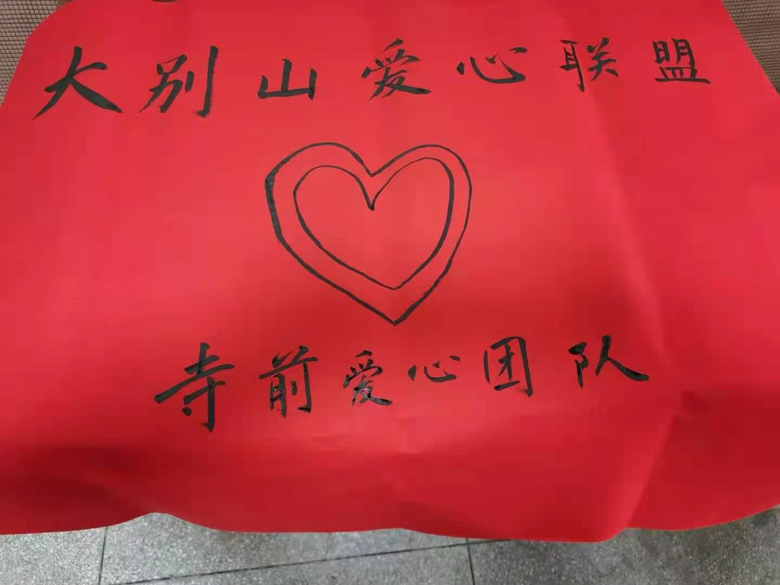 大别山爱心联盟
寺前爱心团队